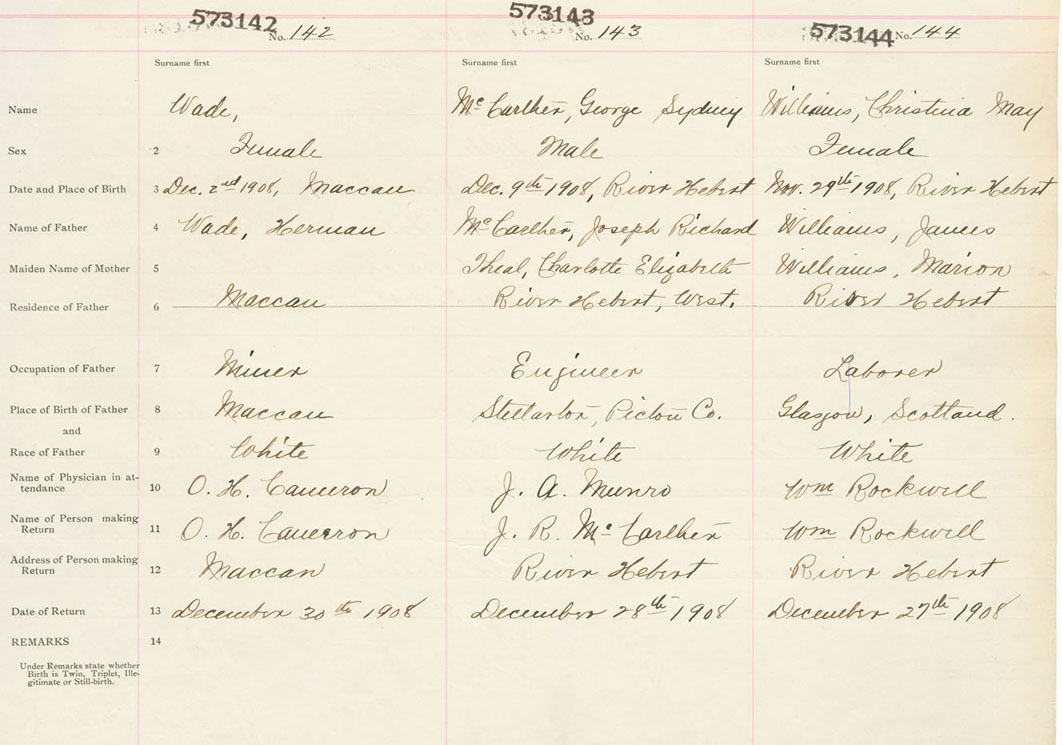 573142 No. 142 573143 No. 143 573144 No. 144
Surname first Surname first Surname first
Name Wade, Mc Carlher, George Sydney Williams, Christina May
Sex 2 Female Male Female
Date and Place of Birth 3 Dec. 2nd 1908, Maccan Dec. 9th 1908, River Hebert Nov. 29th 1908, River Hebert
Name of Father 4 Wade, Herman Mc Carlher, Joseph Richard Williams, James
Maiden Name of Mother 5 Theal, Charlotte Elizabeth Williams, Marion
Residence of Father 6 Maccan River Hebert, West. River Hebert
Occupation of Father 7 Miner Engineer Laborer
Place of Birth of Father 8 Maccan Stellarton, Pictou Co. Glasgow, Scotland.
and
Race of Father 9 White White White
Name of Physician in at-
tendance 10 O. H. Cameron J. A. Munro Wm Rockwell
Name of Person making
Return 11 O. H. Cameron J. R. Mc Carlher Wm Rockwell
Address of Person making
Return 12 Maccan River Hebert River Hebert
Date of Return 13 December 30th 1908 December 28th 1908 December 27th 1908
REMARKS 14
Under Remarks state whether
Birth is Twin, Triplet, Ille-
gitimate or Still-birth.